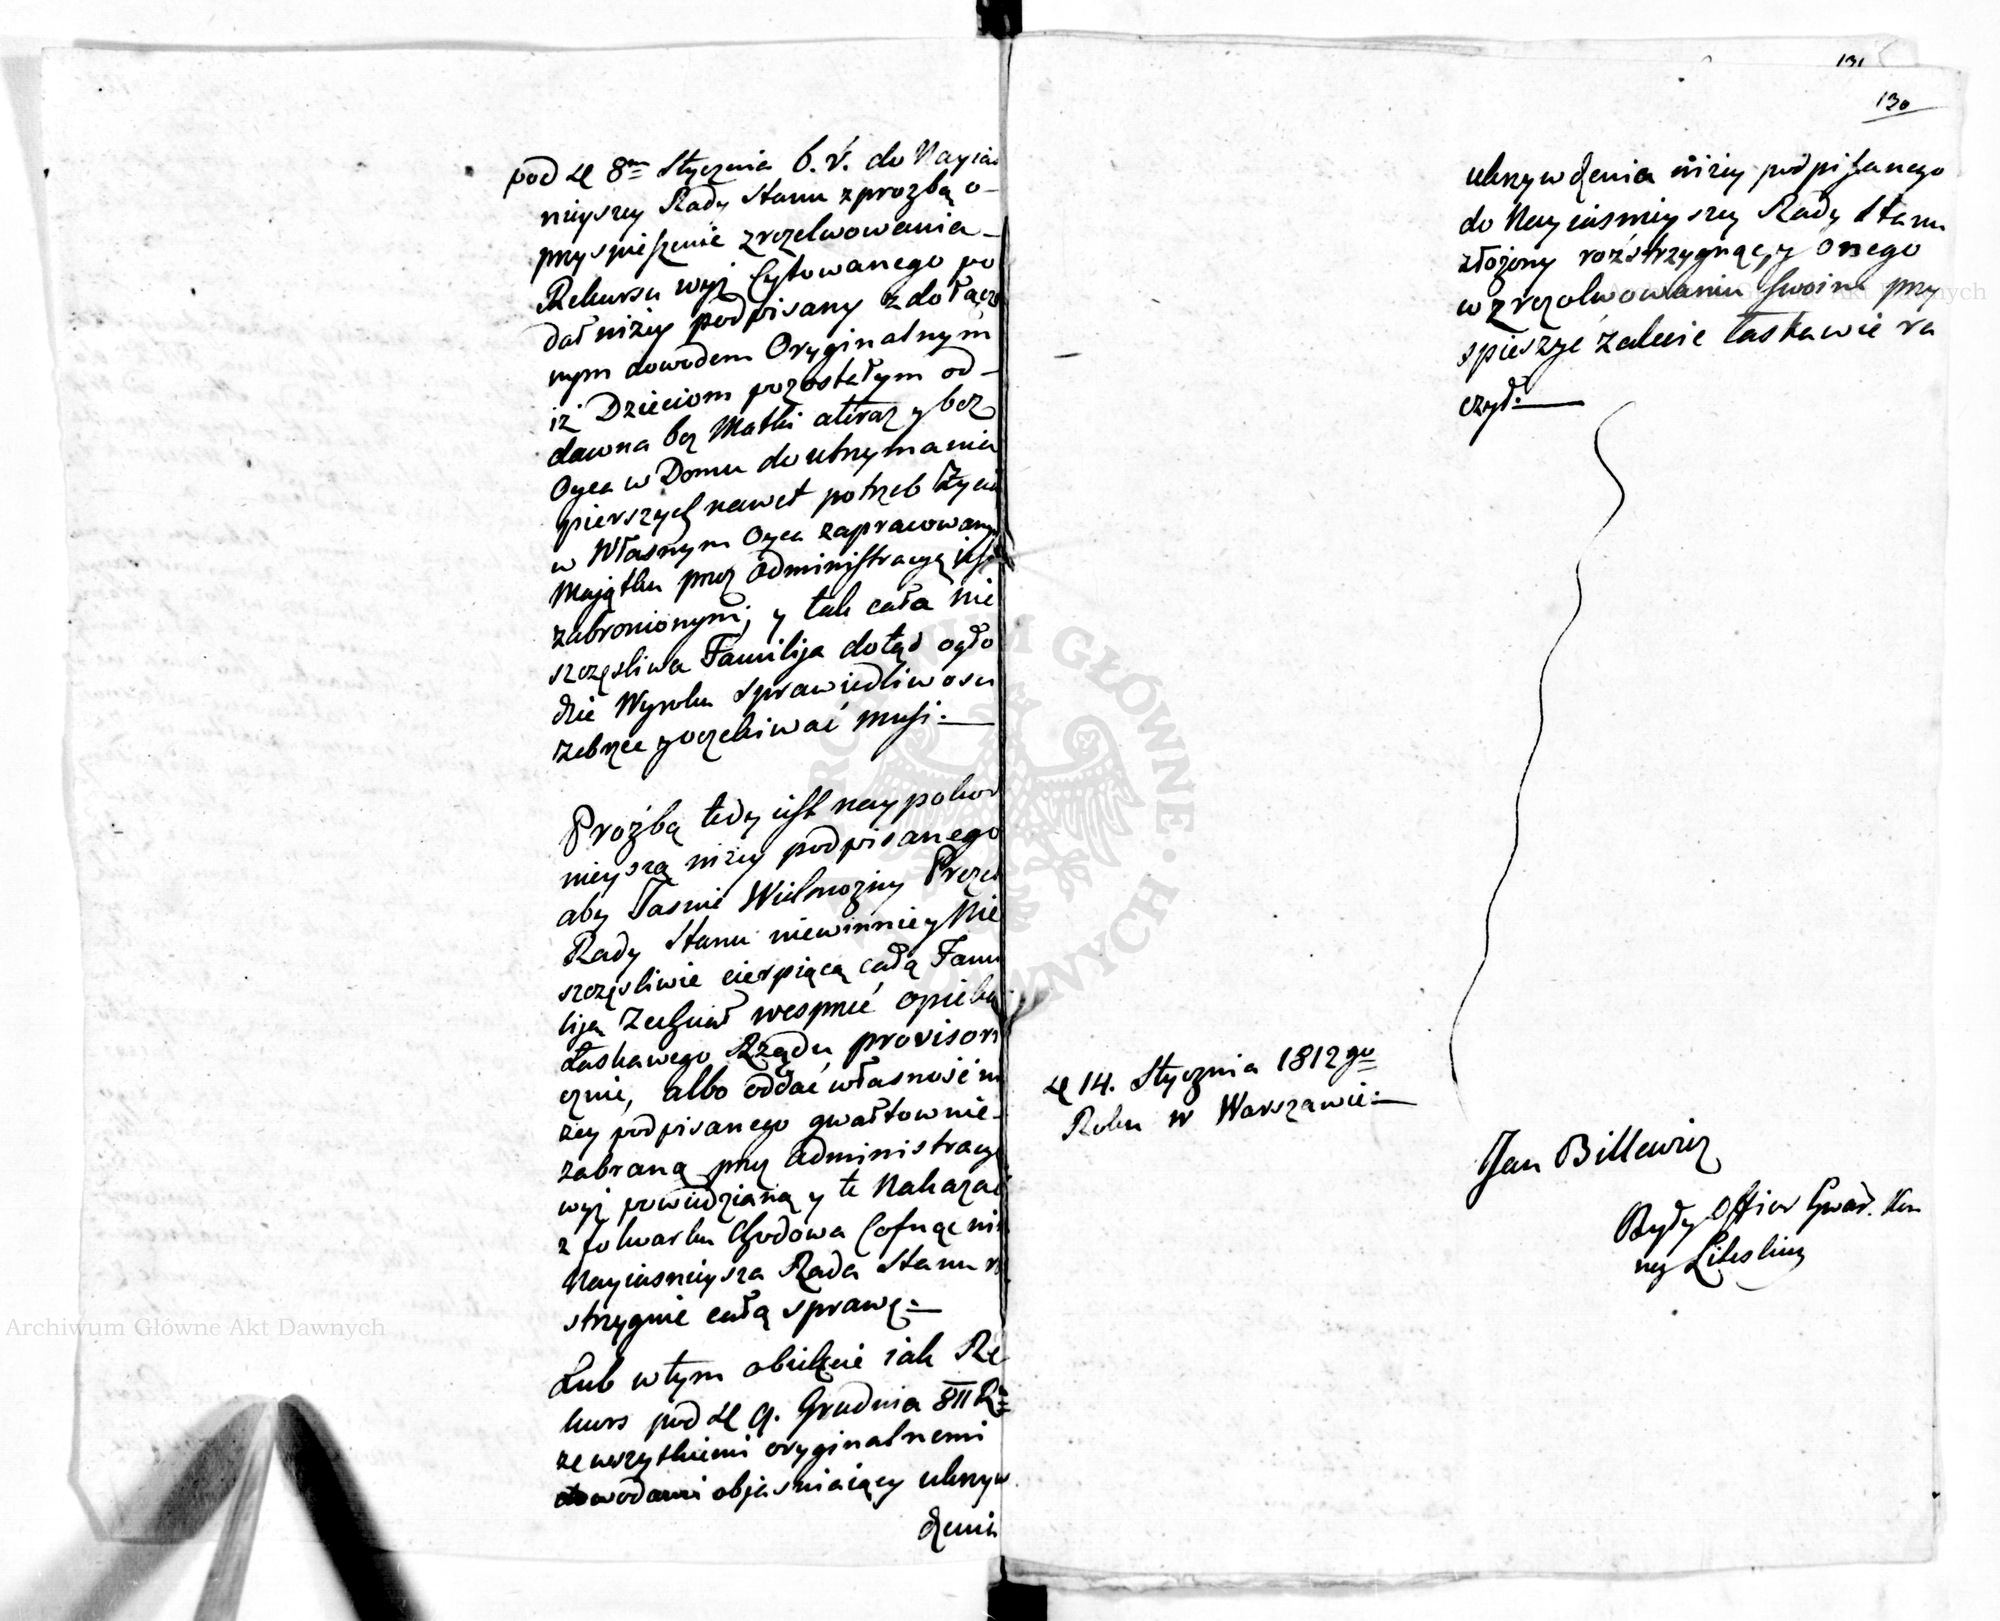 pod d. 8m Stycznia b. r. do Nayias
nieyszey Rady Stanu z prozbą o-
przyspieszenie zrezolwowania-
Rekursu wyż Cytowanego po
dał niżey podpisany z dołączo
nym dowodem Oryginalnym
iż Dzieciom pozostałym od-
dawna bez Matki a teraz y bez
Oyca w Domu do utrzymania
pierszych nawet potrzeb Życia
w Własnym Oyca zapracowanym
Majątku przez administracyą iest
zabronionym; y tak cała nie
szczęsliwa Familija dotąd o gło
dzie Wyroku sprawiedliwosci
żebrze y oczekiwać musi:—
Proźbą tedy iest naypokor
nieyszą niżey podpisanego
aby Jasnie Wielmożny Prezes
Rady Stanu niewinnie y Nie
szczęsliwie cierpiącą całą Fami
liją Zechciał wesprzeć opieką
Łaskawego Rządu provisory
cznie, albo oddać własność ni
żey podpisanego gwałtownie-
zabraną przez administracyą
wyż powiedzianą y te Nakazać
z folwarku Chodowa Cofnąć nim
Nayiasnieysza Rada Stanu roz
strzygnie całą sprawę:—
Lub w tym obiekcie iak Re
kurs pod d. 9. Grudnia 811 R=
ze wszystkiemi oryginalnemi
dowodami objasniaiący ukrzyw
dzenia
131
130
ukrzywdzenia niżey podpisanego
do Nayiasnieyszey Rady Stanu
złożony roźstrzygnący onego
w zrezolwowaniu swoim przy
spieszyć zalecić łaskawie ra
czył:—
d. 14. Stycznia 1812go
Roku w Warszawie:—
Jan Billewicz
Były Officer Gwar. Kon
ney Litewskiey
Archiwum Główne Akt Dawnych
Archiwum Główne Akt Dawnych
ARCHIWUM GŁÓWNE AKT DAWNYCH